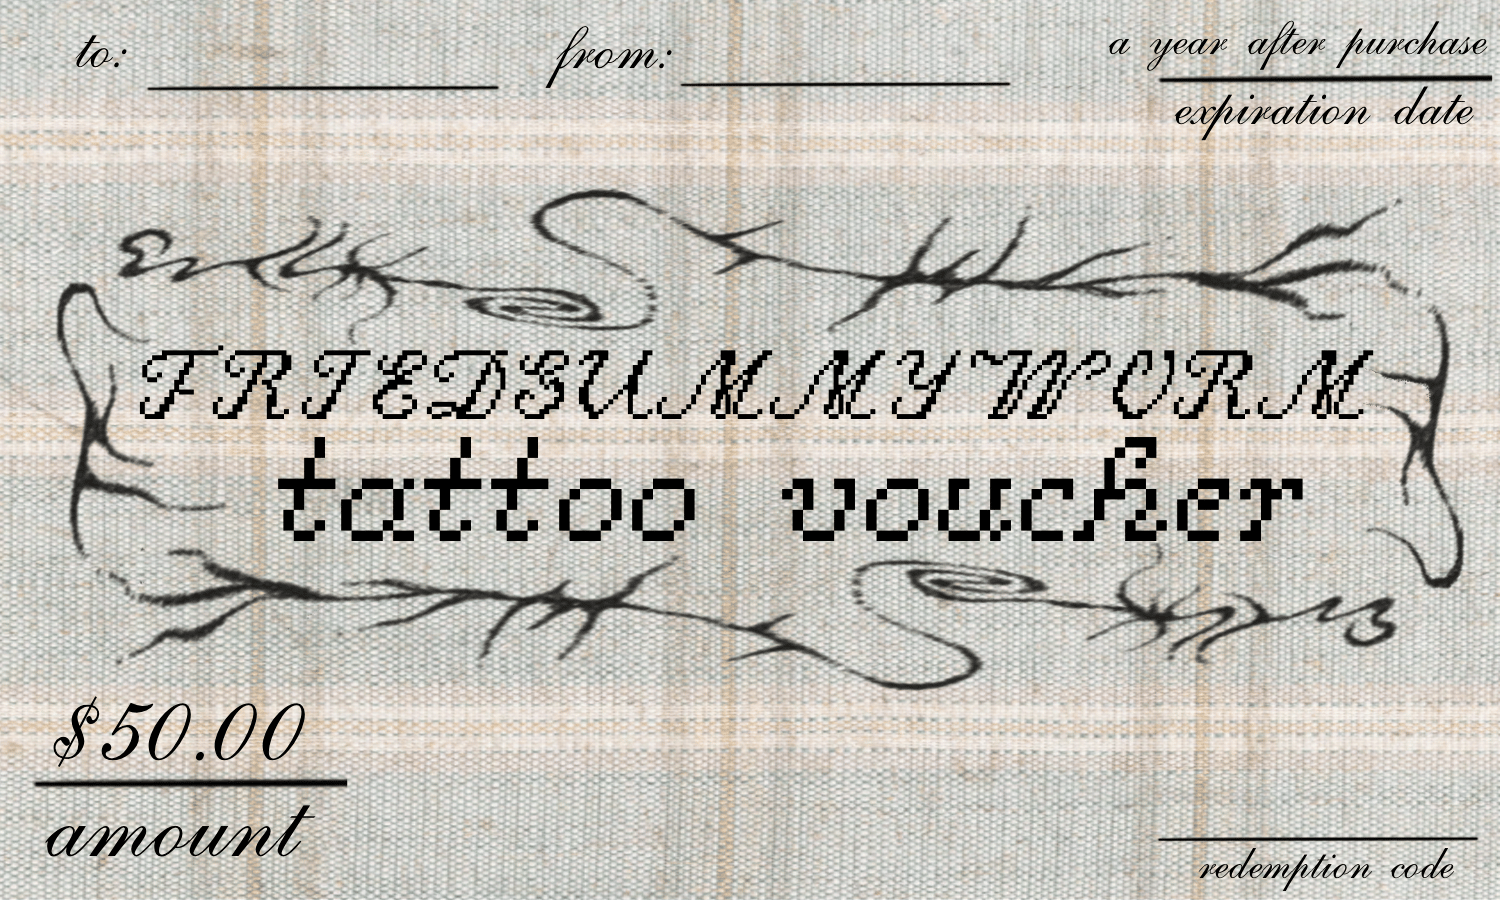 to: from: a year after purchase
expiration date
FRIEDGUMMYWORM
tattoo voucher
$50.00
amount
redemption code